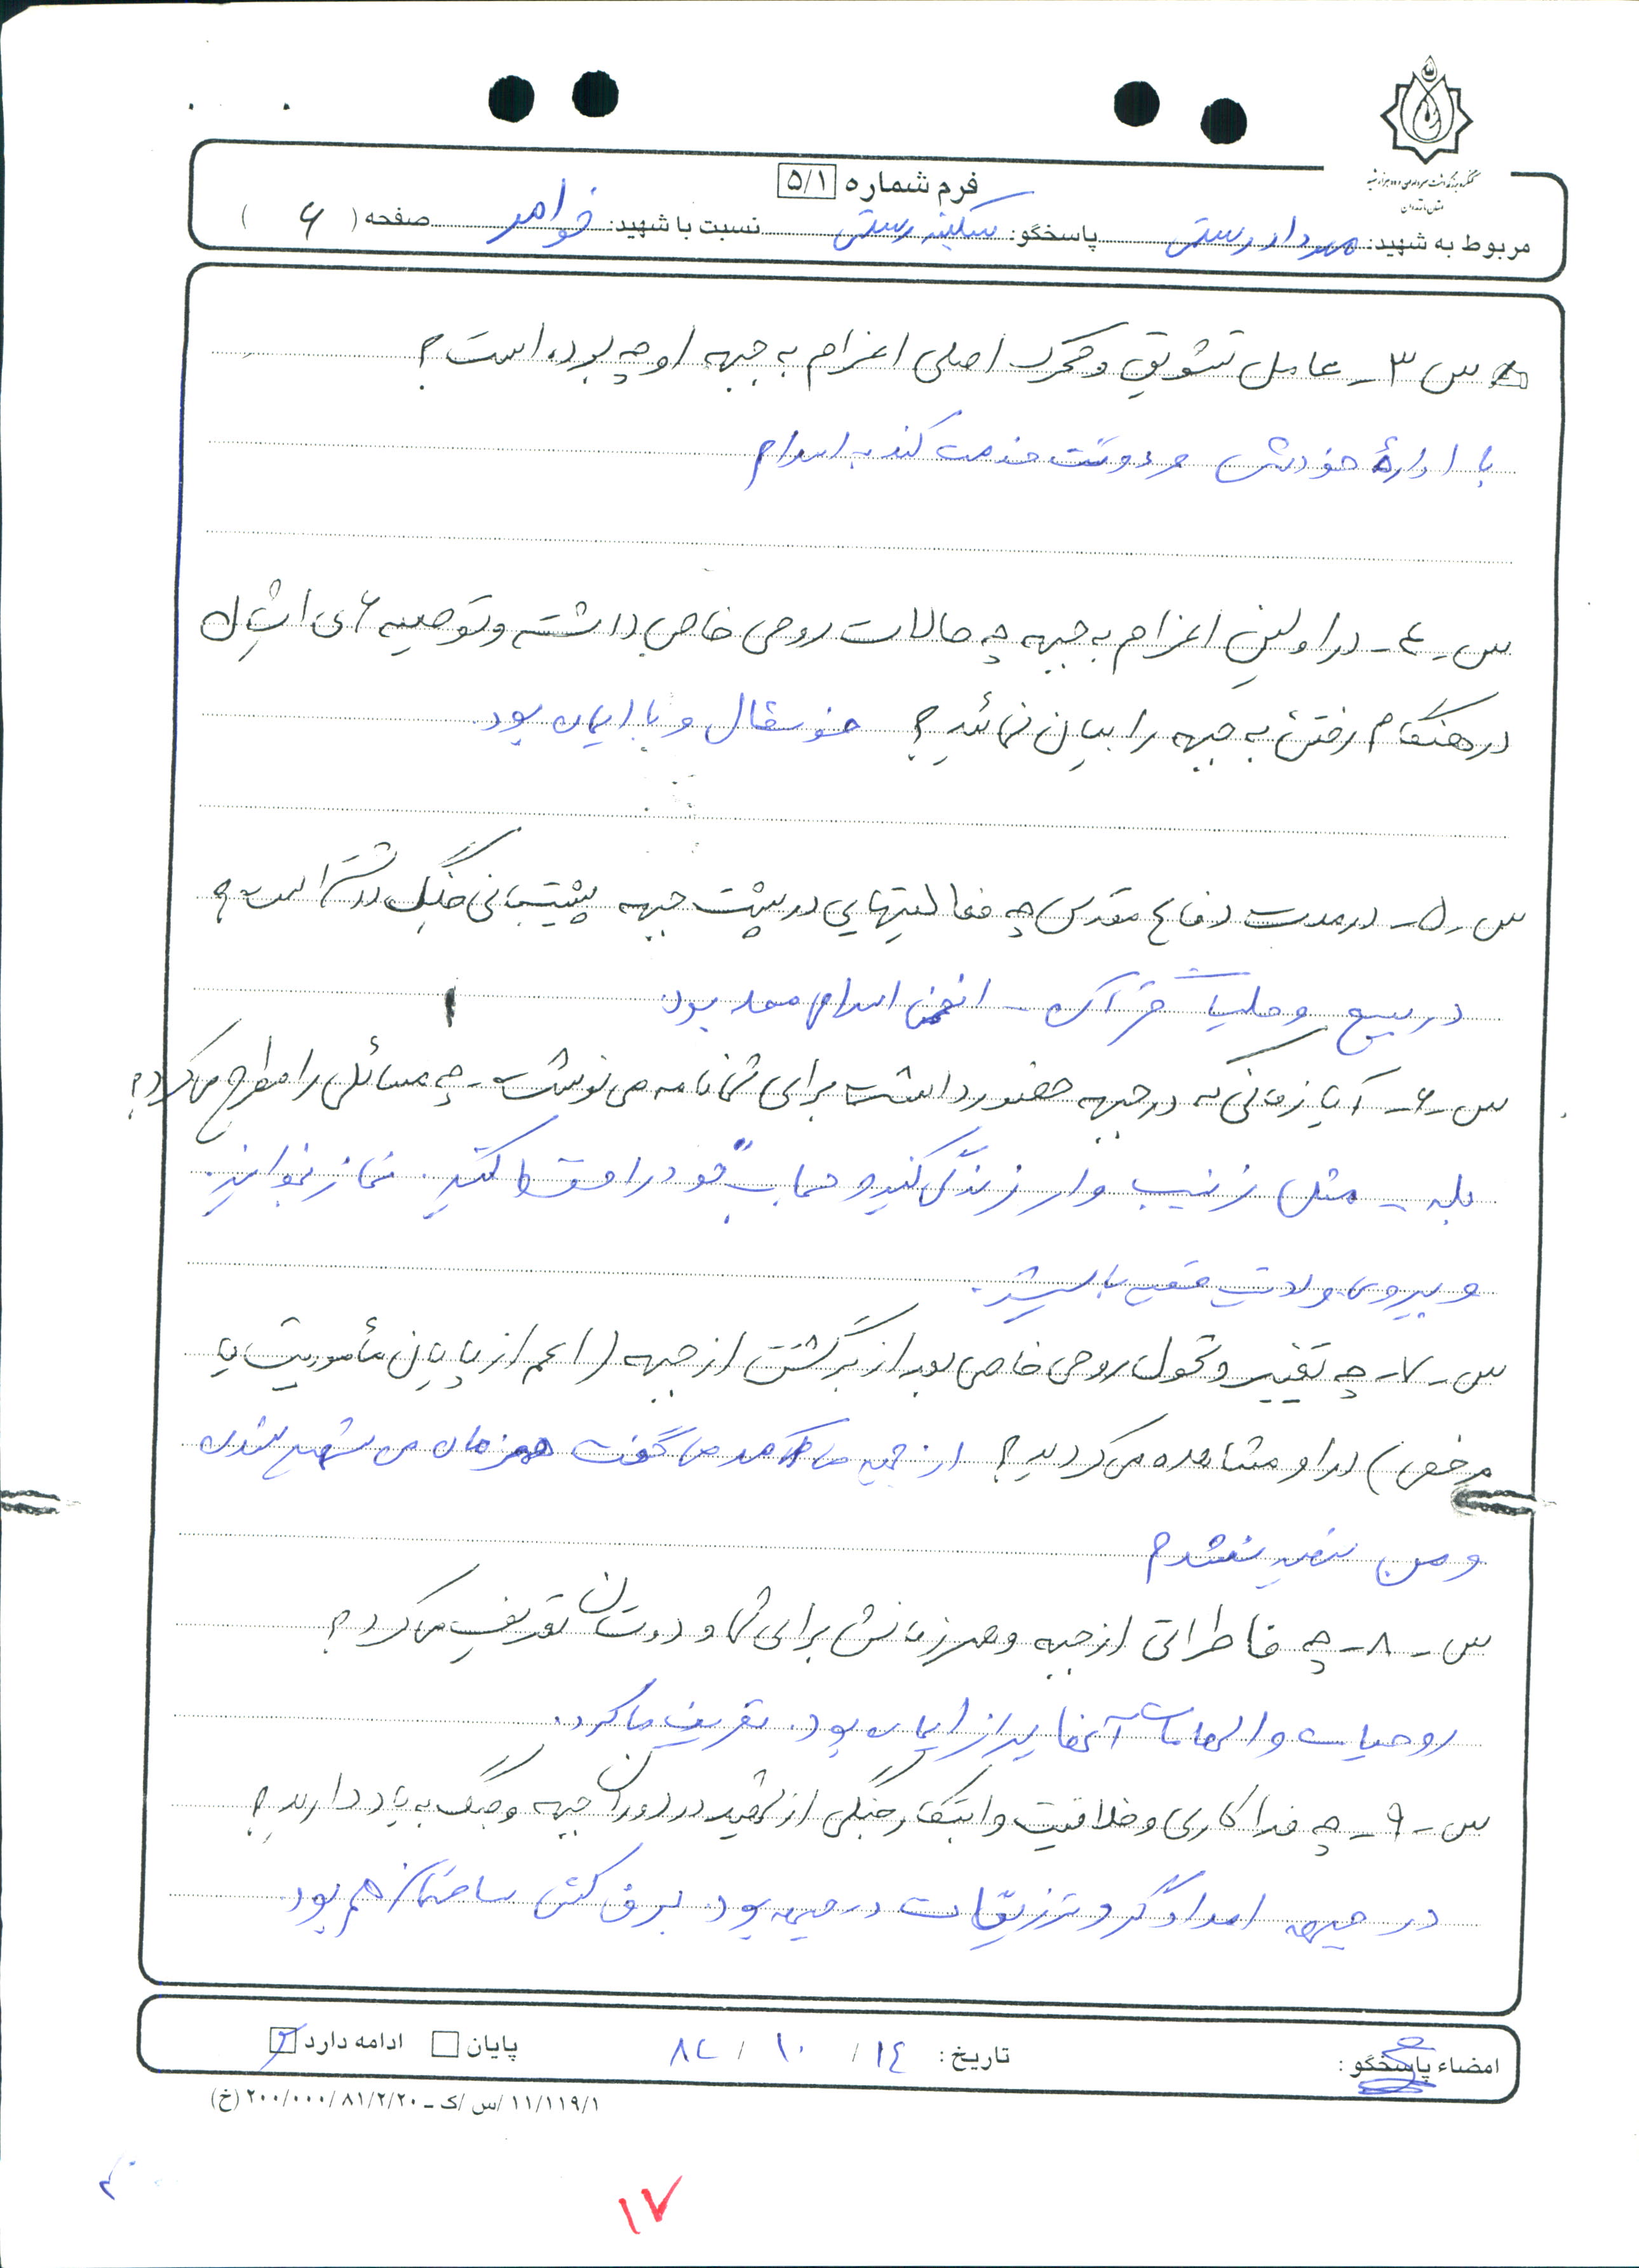 کنگره بزرگداشت سرداران و ده هزار شهید
استان مازندران
فرم شماره ۵/۱
مربوط به شهید: سردار رستمی پاسخگو: سکینه رستمی نسبت با شهید: خواهر صفحه ( ۶ )
س ۳ـ عامل تشویق و محرک اصلی اعزام به جبهه او چه بوده است؟
با ارادهٔ خودش می‌دوست خدمت کند به اسلام
س ـ ٤ ـ در اولین اعزام به جبهه چه حالات روحی خاصی داشته و توصیه های ایشان
در هنگام رفتن به جبهه را بیان نمائید؟ خوشحال و با ایمان بود.
س ـ ۵ ـ در مدت دفاع مقدس چه فعالیتهایی در پشت جبهه پشتیبانی جنگ داشته است؟
در بسیج و جلسات قرآن ـ انجمن اسلامی محل بود.
س ـ ۶ ـ آیا زمانی که در جبهه حضور داشت برای شما نامه می نوشت ـ چه مسائلی را مطرح می کرد؟
بله ـ مثل زینب وار زندگی کنید و حجاب خود را حفظ کنید. نماز بخوانید.
و پیروی ولایت فقیه باشید.
س ـ ۷ ـ چه تغییر و تحول روحی خاصی بعد از برگشتن از جبهه (اعم از پایان مأموریت یا
مرخصی) در او مشاهده می کردید؟ از جبهه می آمد می گفت همرزمان من شهید شدند
و من شهید نشدم
س ـ ۸ ـ چه خاطراتی از جبهه و همرزمانش برای شما و دوستان تعریف می کرد؟
روحیات و الهامات آنها پر از ایمان بود. تعریف می کرد.
س ـ ۹ ـ چه فداکاری و خلاقیت و ابتکار جنگی از شهید در دوران جبهه و جنگ به یاد دارید؟
در جبهه امدادگر و تزریقات در جبهه بود. برق کش ساختمان هم بود.
امضاء پاسخگو : تاریخ: ١٤ / ١٠ / ٨٢ پایان ادامه دارد
۱۱/۱۱۹/۱ /س /ک ـ ۲۰۰/۰۰۰/۸۱/۲/۲۰ (خ)
۱۷